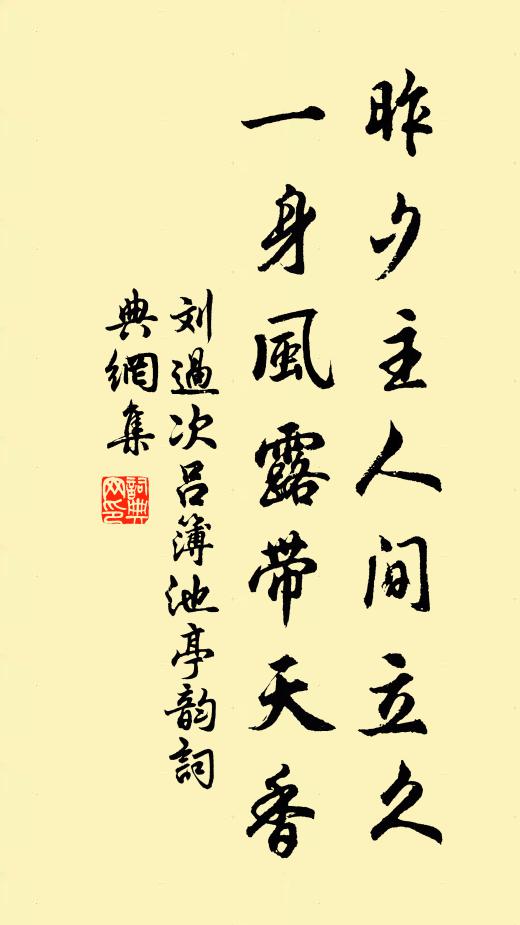 昨夕主人间立久
一身風露带天香
刘過次吕簿池亭韵詞
典網集
詞典网印